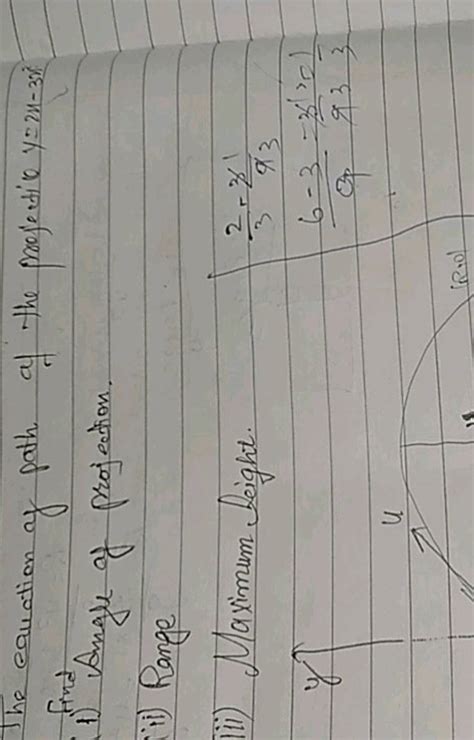 The equation of path of the projectile y=2x-3x²
find
(i) Angle of projection.
(ii) Range
(iii) Maximum height.
2/3 - 3/9 1/3
6-3/9 = 3/9 = 1/3
y
u
(R,0)